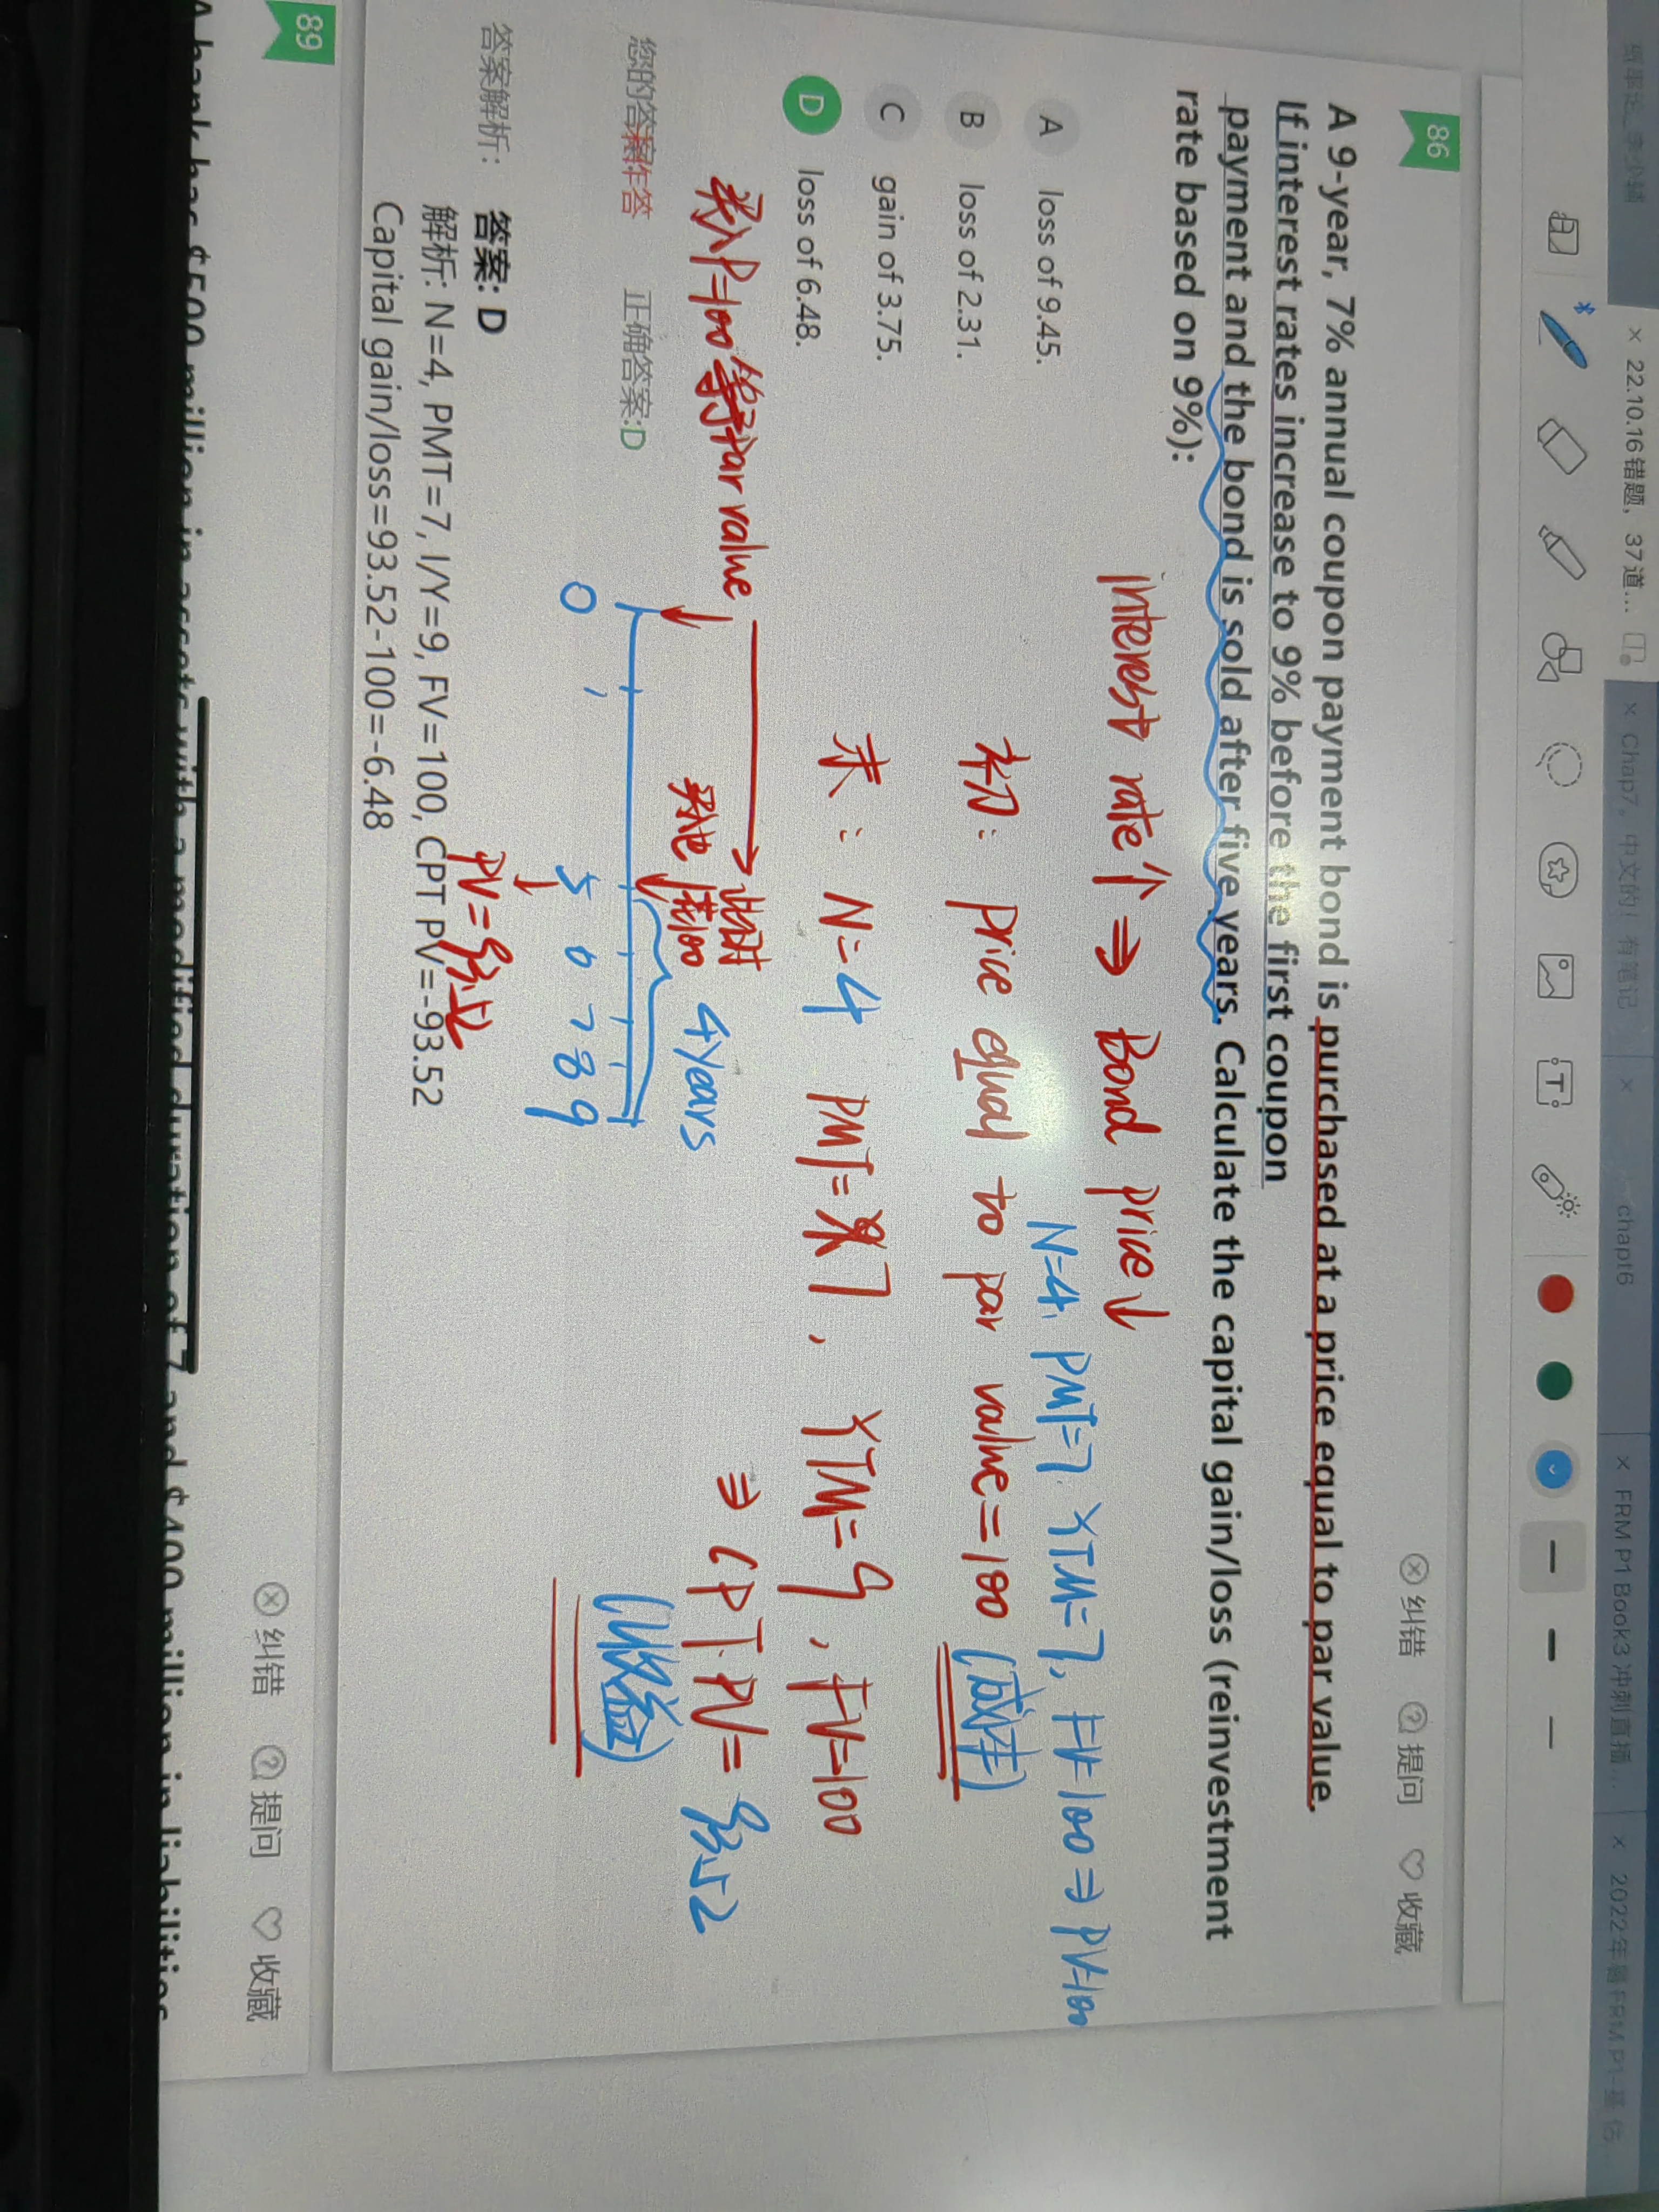 × 22.10.16错题，37道...
× Chap7，中文的！有笔记
×
chapt6
× FRM P1 Book3 冲刺直播...
× 2022年暑FRM P1-基 估
86
纠错 提问 收藏
A 9-year, 7% annual coupon payment bond is purchased at a price equal to par value.
If interest rates increase to 9% before the first coupon
payment and the bond is sold after five years. Calculate the capital gain/loss (reinvestment
rate based on 9%):
interest rate↑ ⇒ Bond price↓
N=4, PMT=7, YTM=7, FV=100 ⇒ PV=100
A loss of 9.45.
B loss of 2.31.
初: price equal to par value=100 (成本)
C gain of 3.75.
D loss of 6.48.
末: N=4 PMT=7, YTM=9, FV=100
⇒ CPT PV= 93.52
(收益)
买入P=100等于par value
此时
4years
您的答案:未作答 正确答案:D
0 1 5 6 7 8 9
答案解析:
答案: D
PV=93.52
解析: N=4, PMT=7, I/Y=9, FV=100, CPT PV=-93.52
Capital gain/loss=93.52-100=-6.48
89
纠错 提问 收藏
A bank has $500 million in assets with a modified duration of 7 and $400 million in liabilities